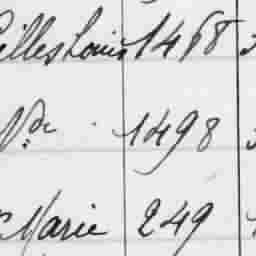 Gilles Louis 1468
Vde 1498
Marie 249